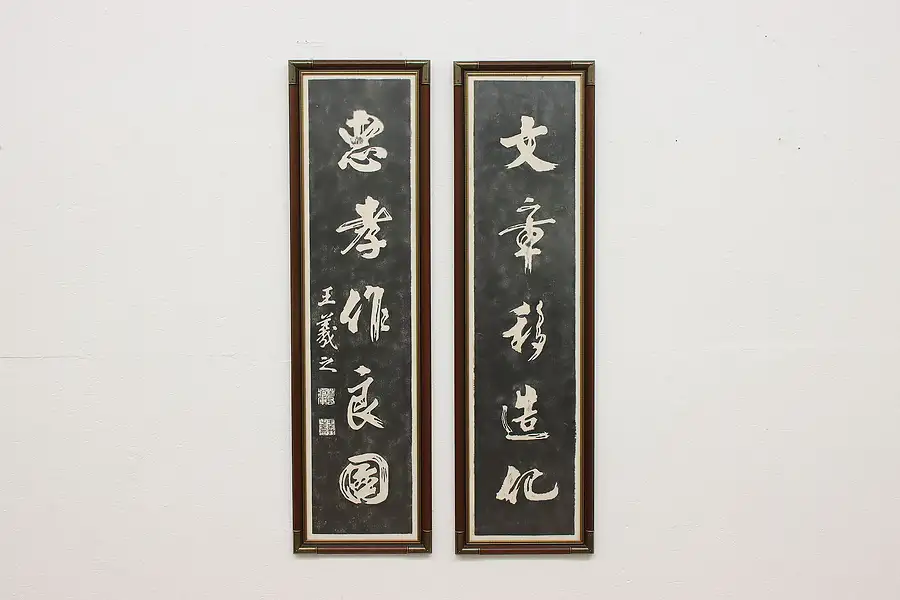 文章移造化
忠孝作良圖
王羲之